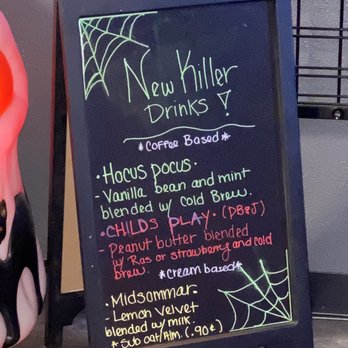 New Killer
Drinks!
*Coffee Based*
• Hocus pocus •
- Vanilla bean and mint
blended w/ cold Brew.
• CHILDS PLAY • (PB&J)
- Peanut butter blended
w/ Ras or strawberry and cold
brew.
*cream based*
• Midsommar
- Lemon Velvet
blended w/ milk.
* Sub oat/Alm. (.90¢)